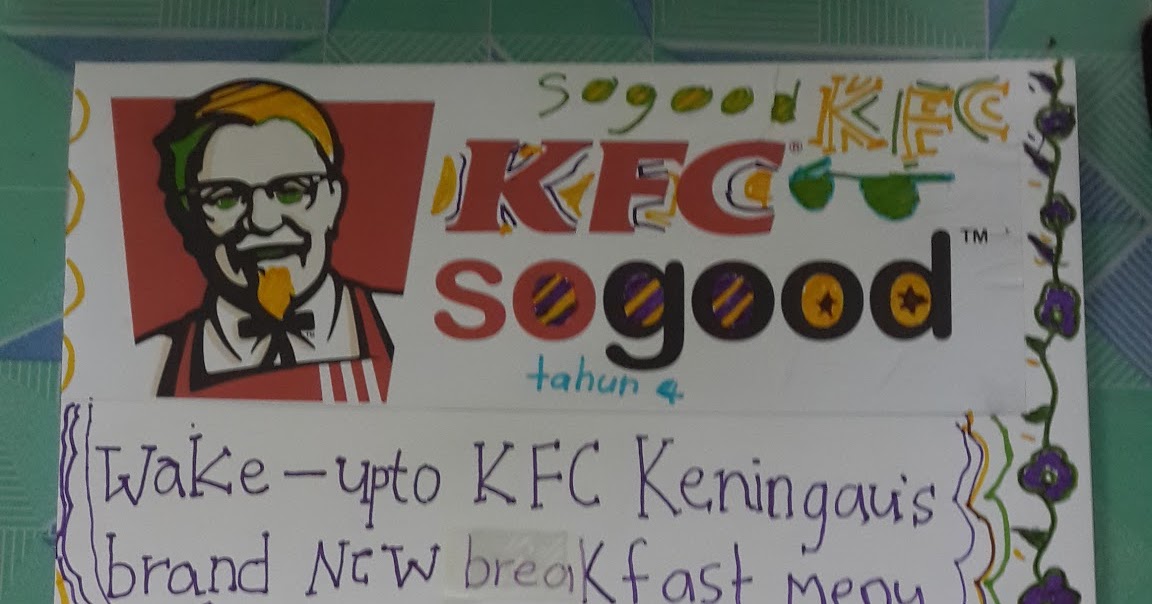 sogood KFC
KFC®
sogood™
tahun 4
Wake-upto KFC Keningau's
brand New breakfast menu